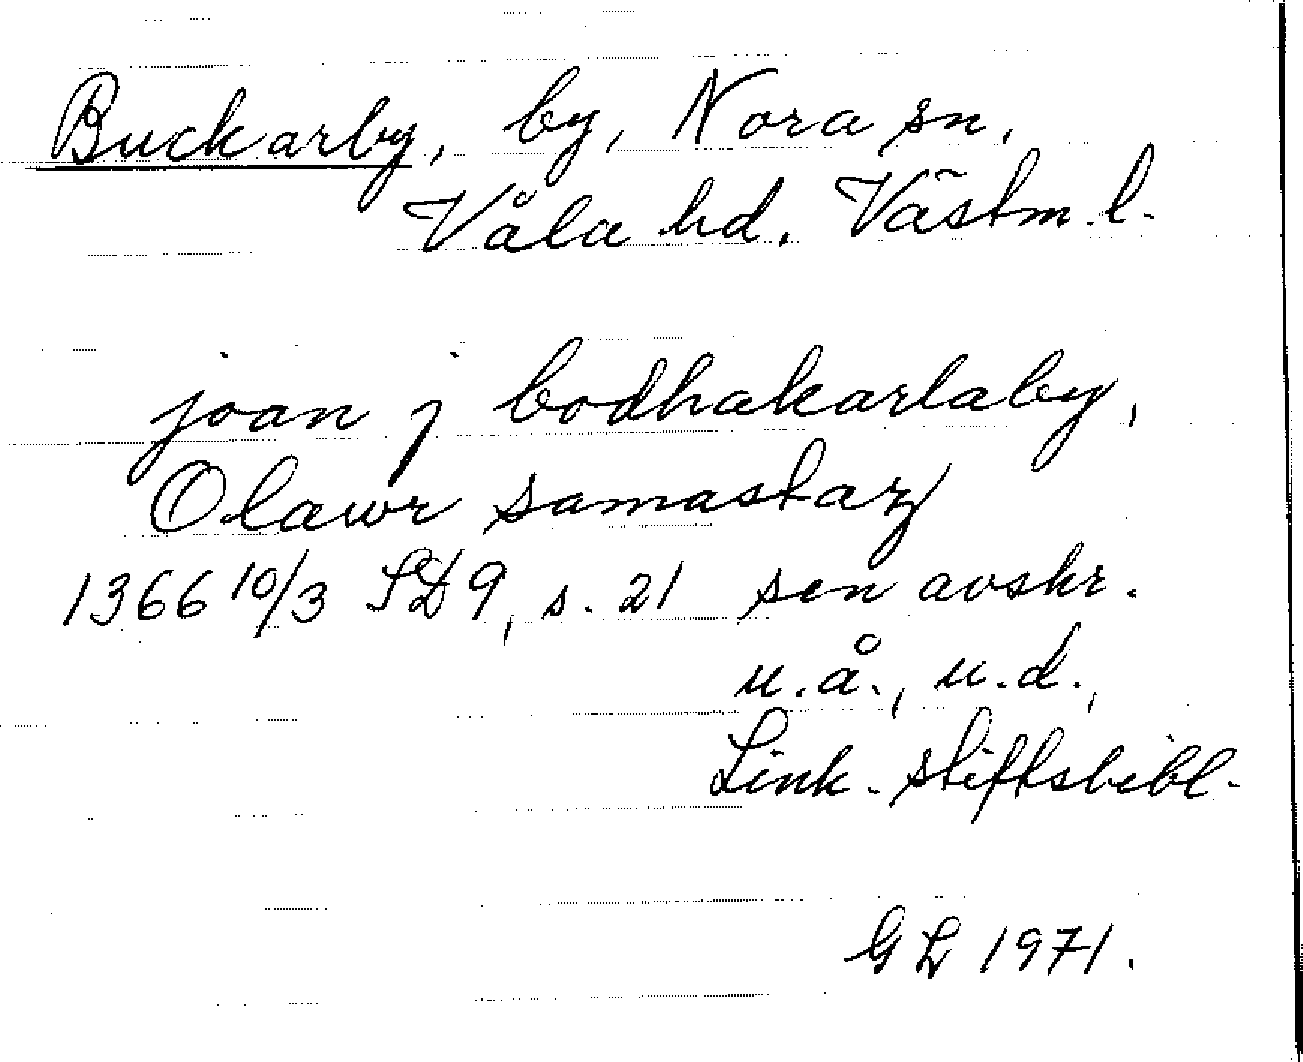 Buckarby, by, Nora sn,
Våla hd. Västm. l.
joan j bodhakarlaby,
Olawr samastaz
1366 10/3 SD 9, s. 21 sen avskr.
u.å., u.d.,
Link. stiftsbibl.
GL 1971.